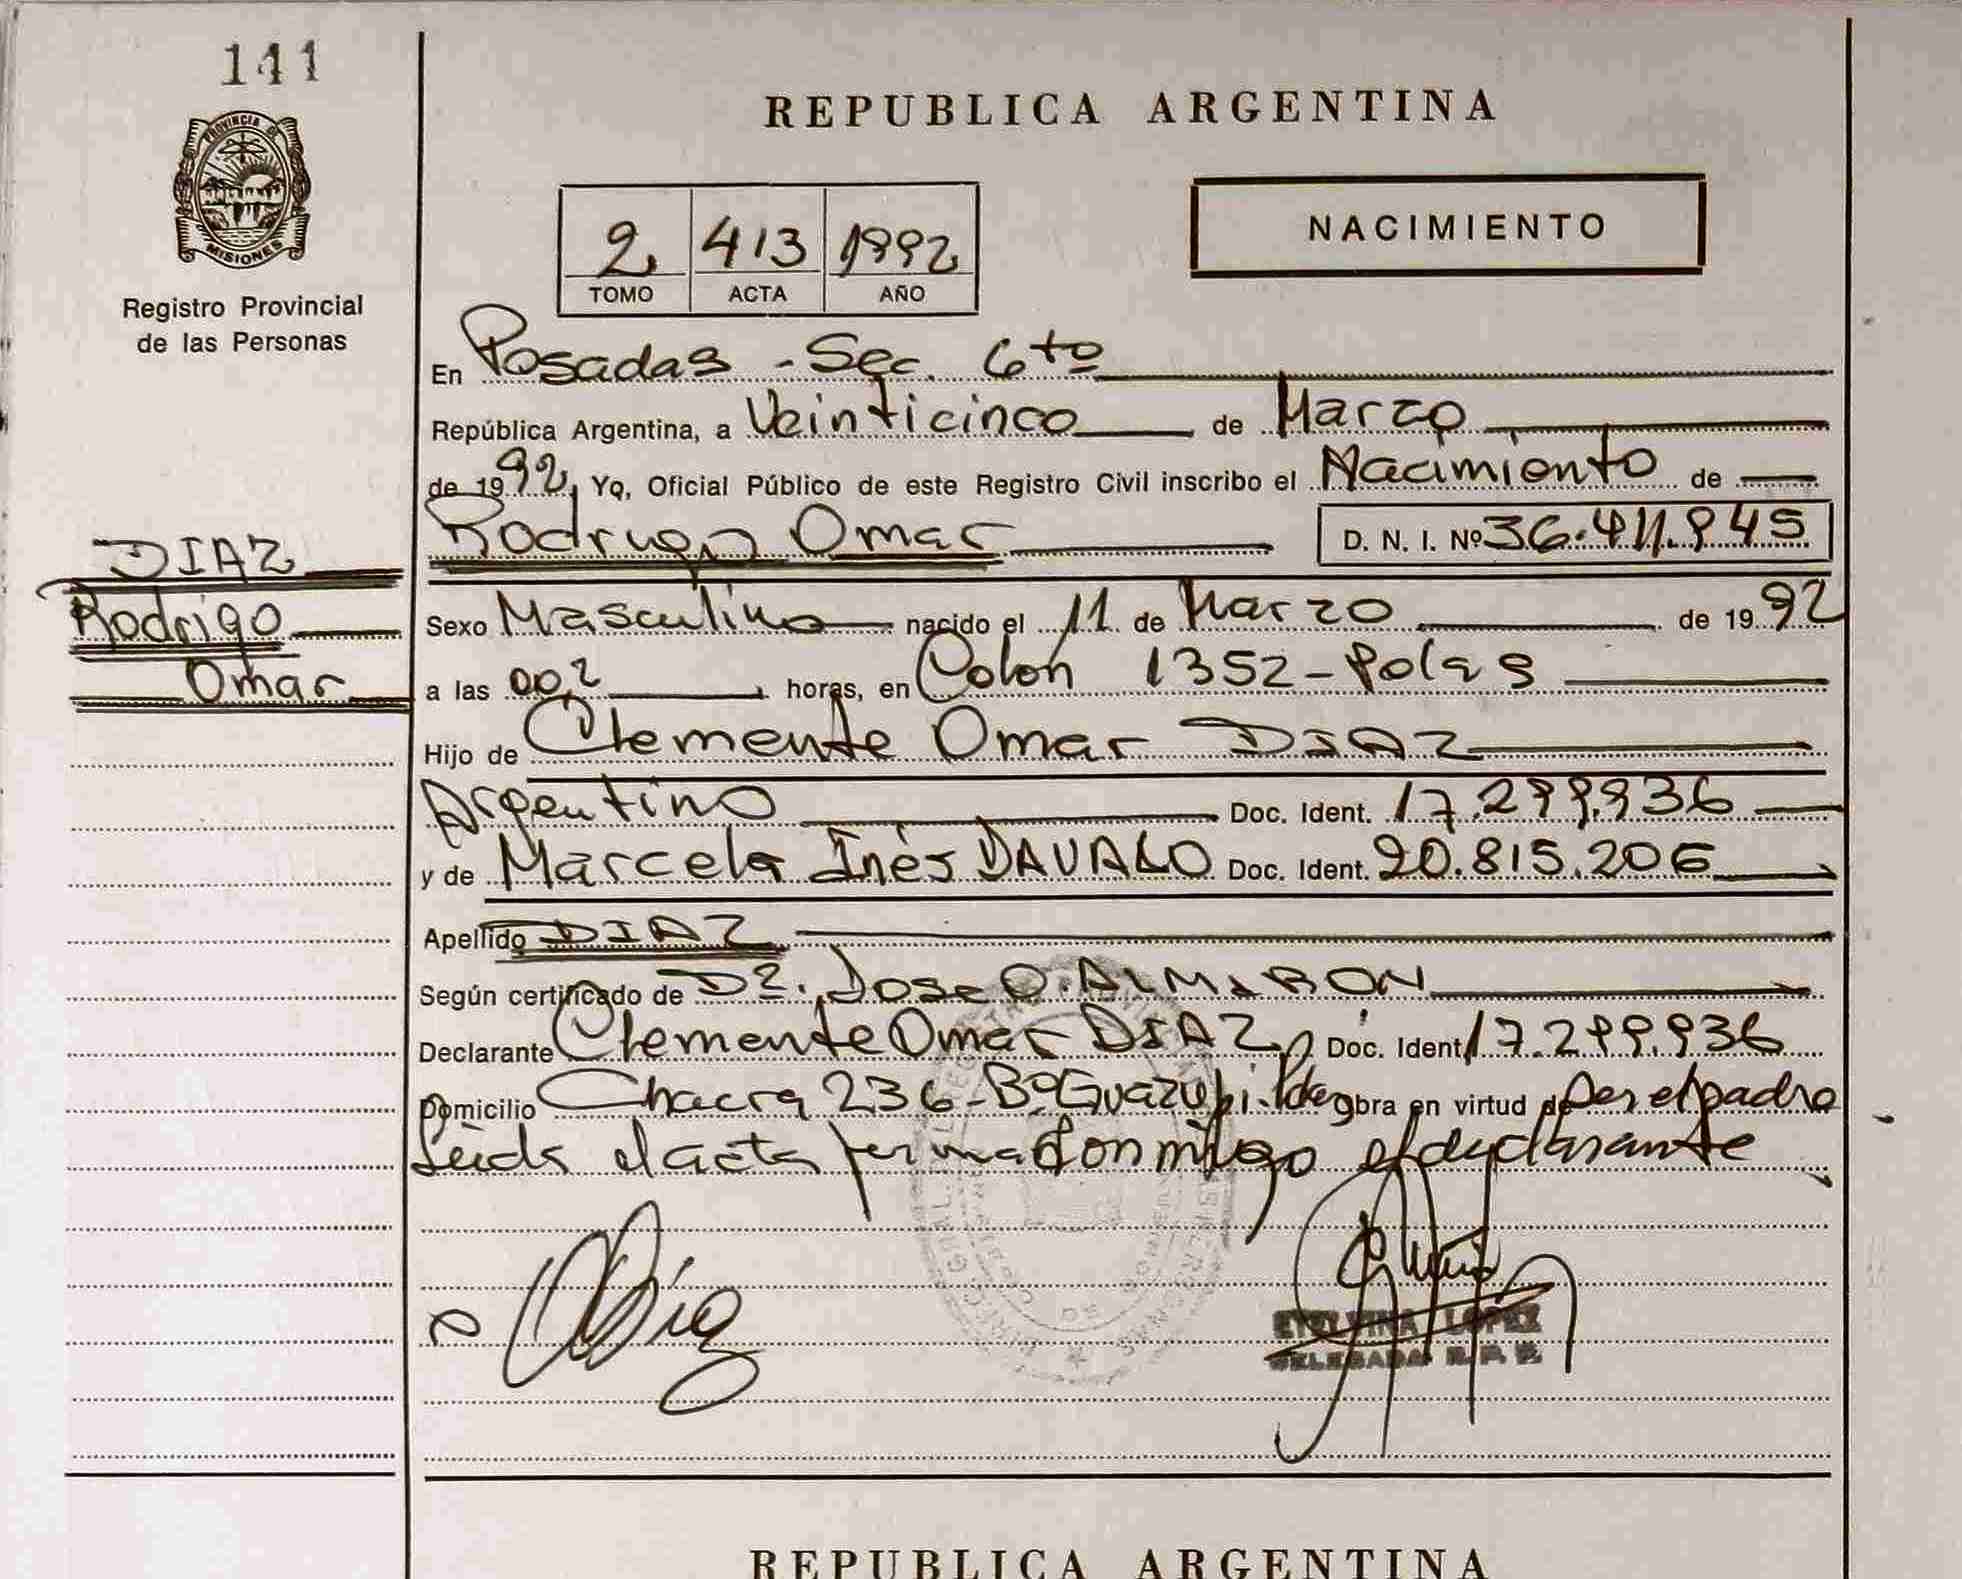 141
PROVINCIA DE
MISIONES
Registro Provincial
de las Personas
DIAZ
Rodrigo
Omar
REPUBLICA ARGENTINA
2 413 1992
TOMO ACTA AÑO
NACIMIENTO
En Posadas - Sec. 6to
República Argentina, a Veinticinco de Marzo
de 1992, Yo, Oficial Público de este Registro Civil inscribo el Nacimiento de
Rodrigo Omar D. N. I. Nº
Sexo Masculino nacido el 11 de Marzo de 1992
a las horas, en Colón 1352 - Pdas
Hijo de Clemente Omar DIAZ
Argentino Doc. Ident. 17.299.936
y de Marcela Inés DAVALO Doc. Ident. 20.815.206
Apellido DIAZ
Según certificado de Dr. Jose O. ALMIRON
Declarante Clemente Omar DIAZ Doc. Ident. 17.299.936
Domicilio Chacra 236 - Bº Guazupi - Pdas obra en virtud de ser el padre
Leida el acta firma conmigo el declarante
Diaz
LOPEZ
DELEGADA R. P. P.
REPUBLICA ARGENTINA